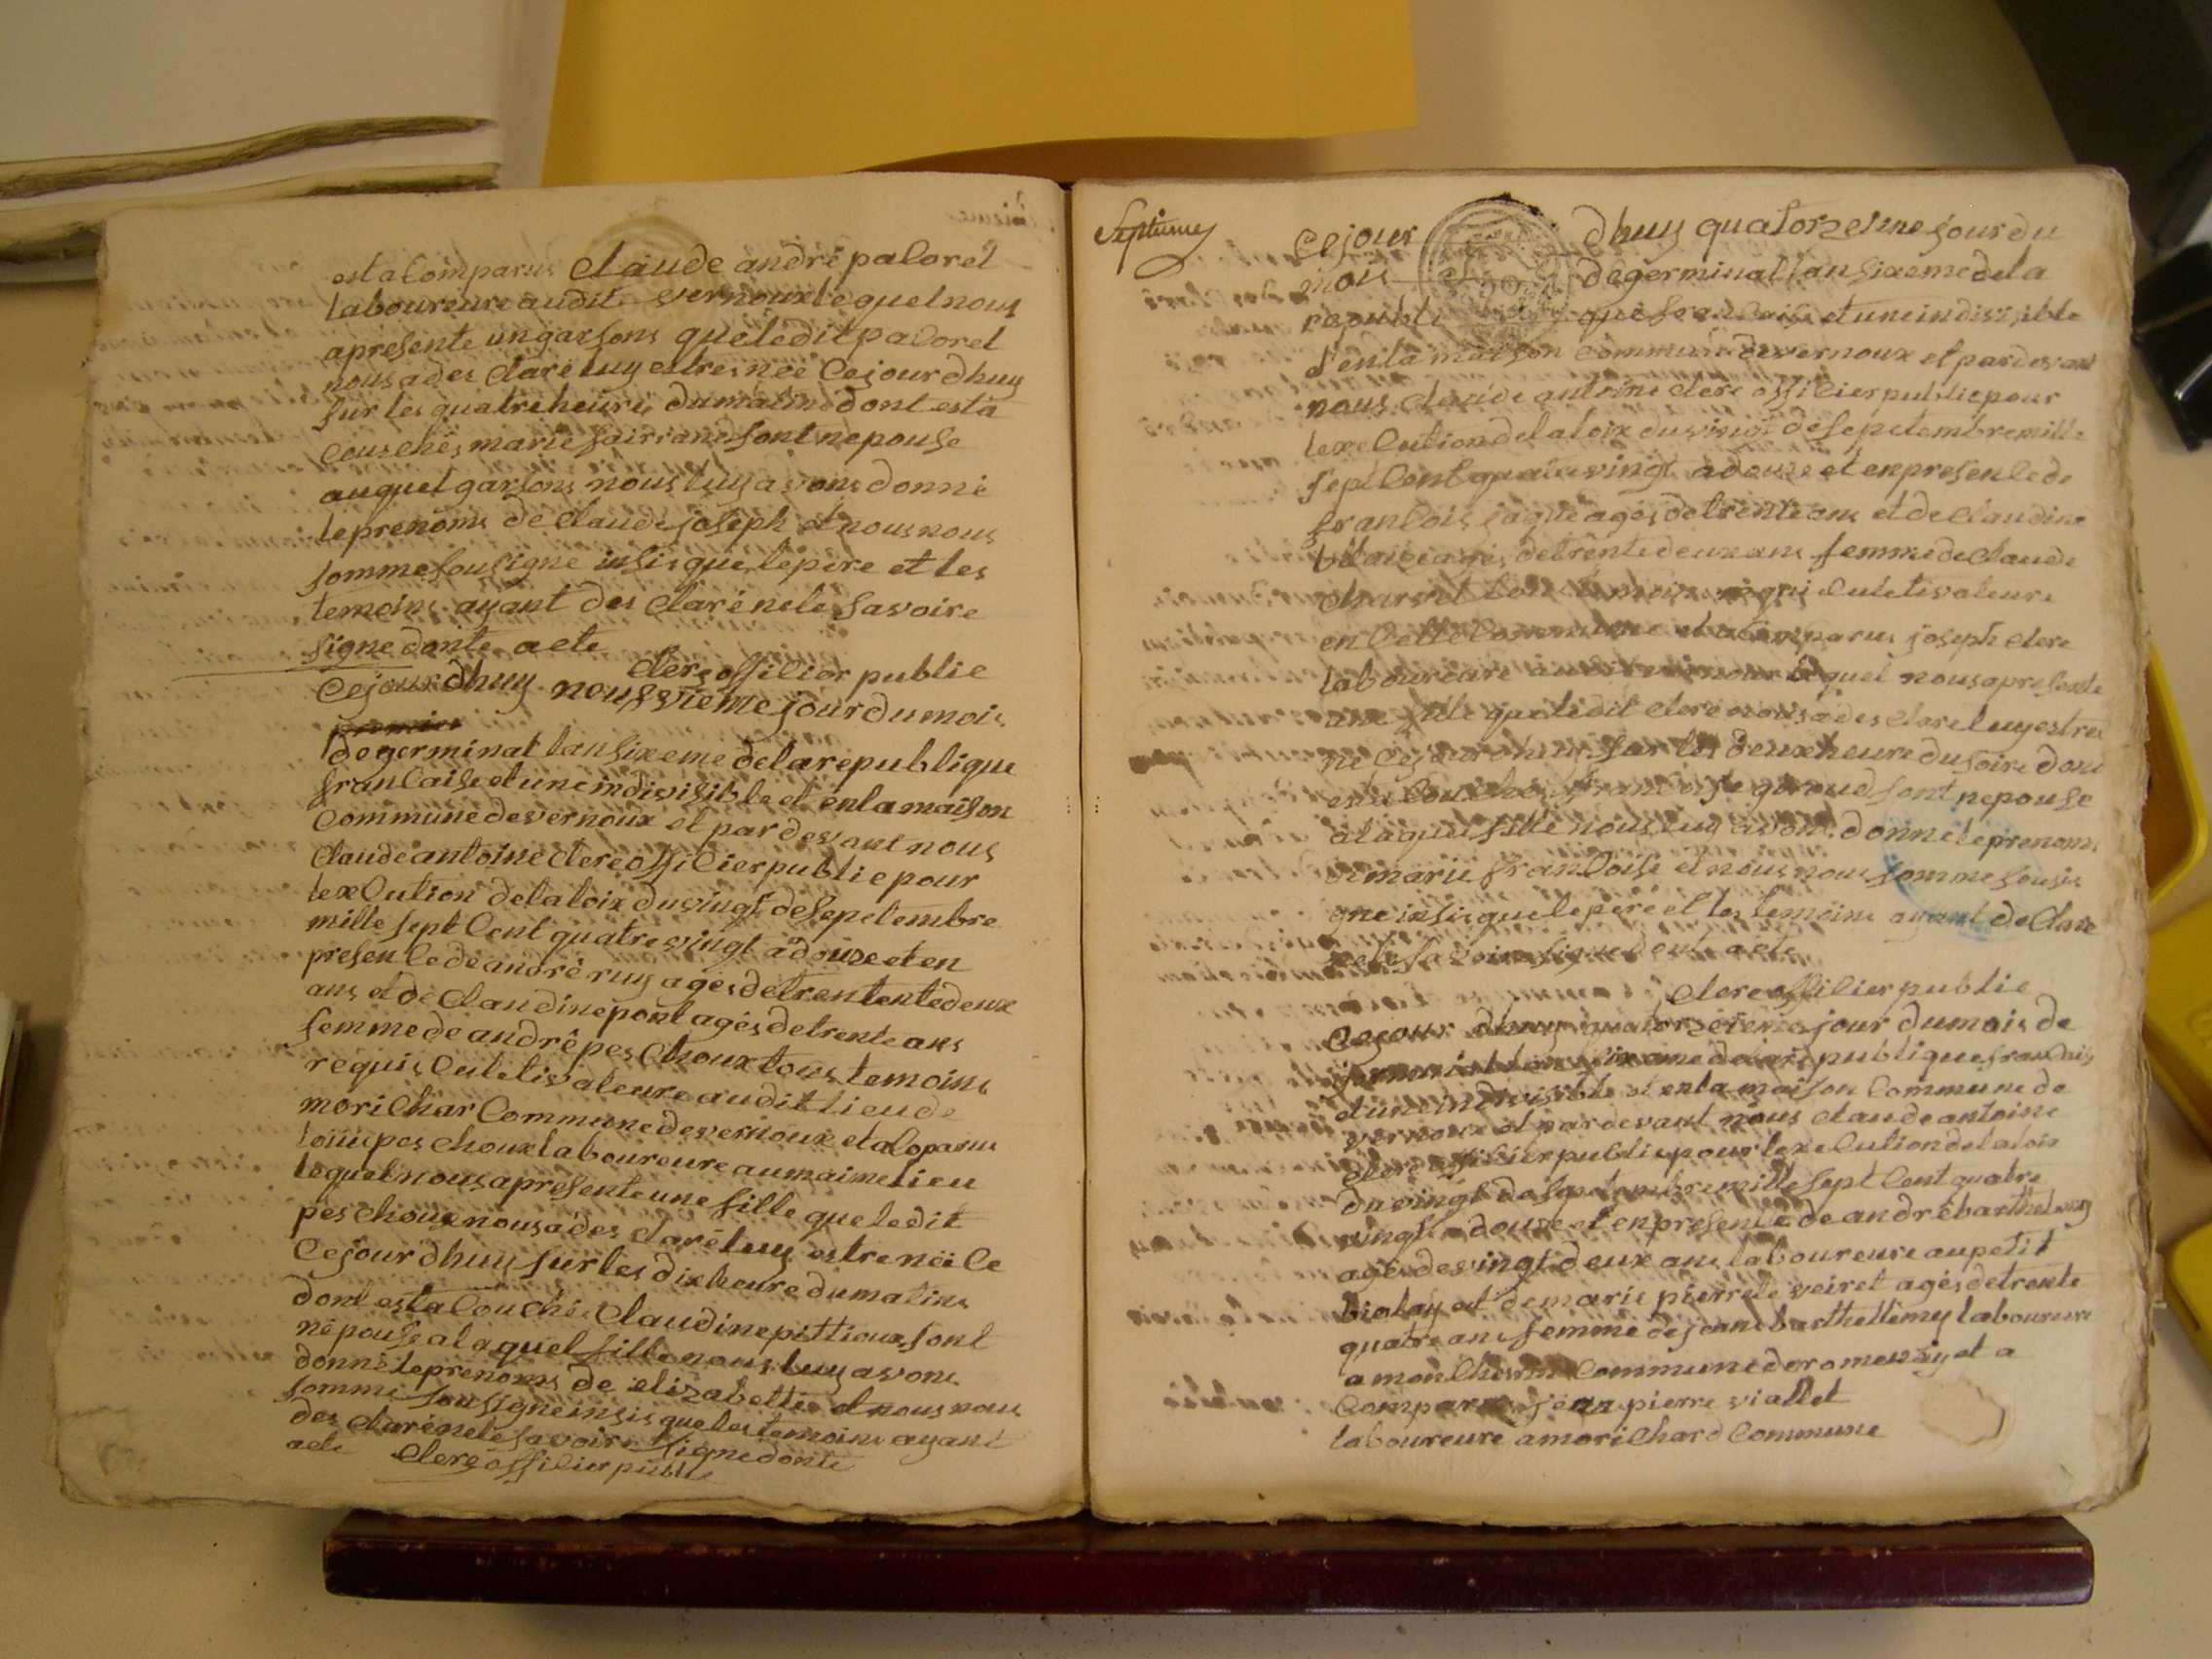 est a Comparus Claude andré paCoret
laboureure audit vernoux le quel nous
a presente un garsons que ledit paCoret
nous a des claré luy estres née Cejourdhuy
sur les quatre heures du matins dont est a
Couchés marie sont nepouse
auquel garsons nous luy avons donné
le prenoms de Claude joseph et nous nous
somme sousigne insis que le pere et les
temoins ayant des claré nele savoire
signe donte acte
Clerc offiCier public
Cejourdhuy noufvieme jour du mois
de germinal lan sixeme de la republique
franCaise et une indivisible et en la maison
Commune de vernoux et par devant nous
Claude antoine Clerc offiCier public pour
lexeCution de la loix du vingt de sepetembre
mille sept Cent quatre vingt a douze et en
presenCe de andré ruy agés de trentente deux
ans et de Claudine pont agés de trente ans
femme de andrê pes Choux tous temoins
requis Culetivateure audit lieu de
moriChar Commune de vernoux et a Coparus
louis pes Choux laboureure au maime lieu
lequel nous a presente une fille que ledit
pes Choux nous a des claré luy estre née Ce
Cejourdhuy sur les dix heure du matins
dont est a Couchés Claudine pittioux sont
népouse a la quel fille nous luy avons
donné le prenoms de elizabettie et nous nous
somme sousigne insis que les temoins ayant
des claré nele savoire signe donte
acte Clerc offiCier public
Septieme
Cejour dhuy quatorzesme jour du
mois de germinal lan sixeme de la
republique franCaise et une indivisible
et en la maison Commune de vernoux et par devant
nous Claude antoine Clerc offiCier public pour
lexeCution de la loix du vingt de sepetembre mille
sept Cent quatre vingt a douze et en presenCe de
franCois agés de trente ans et de Claudine
agés de trente deux ans femme de Claude
Charvet tous temoins requi Culetivateure
en Cette Commune et a Comparus joseph Clerc
laboureure audit vernoux le quel nous a presente
une fille que ledit Clerc nous a des claré luy estres
né Cejourdhuy sur les deux heure du soire dont
est a Couchés franCoise giroud sont nepouse
a laquel fille nous luy avons donne le prenoms
de marie franCoise et nous nous somme sousi
gne insis que le pere et les temoins ayant de Clare
nele savoire signe dont acte
Clerc offiCier public
Cejour dhuy quatorzeieme jour du mois de
germinal lan sixeme de la republique franCaise
et une indivisible et en la maison Commune de
vernoux et par devant nous Claude antoine
Clerc offiCier public pour lexeCution de la loix
du vingt de sepetembre mille sept Cent quatre
vingt a douze et en presenCe de andré barthelemy
agés de vingt deux ans laboureure au petit
biolay et de marie pierrete veiret agés de trente
quatre ans femme de jean barthellemy laboureure
a Commune de romenay et a
Comparus jean pierre viallet
laboureure a moriChard Commune